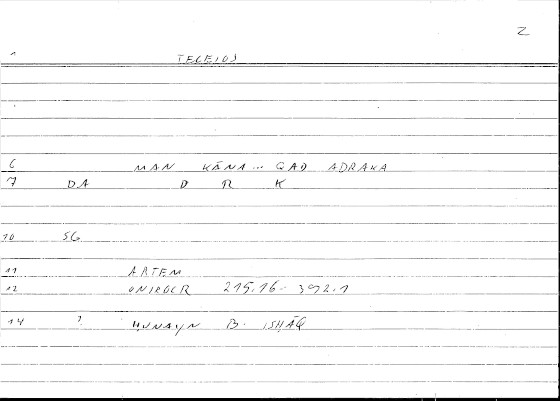 Z
1 TELEIOS
6 MAN KĀNA... QAD ADRAKA
7 DA D R K
10 SG
11 ARTEM
12 ONIROCR 215.16 - 392.1
14 ? ḤUNAYN B. ISḤĀQ